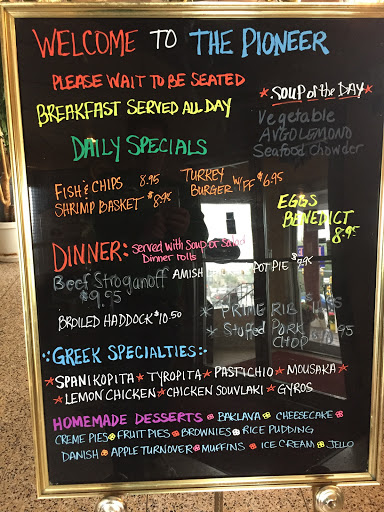 WELCOME TO THE PIONEER
PLEASE WAIT TO BE SEATED
BREAKFAST SERVED ALL DAY
* SOUP of the DAY *
Vegetable
AVGOLEMONO
Seafood Chowder
DAILY SPECIALS
FISH & CHIPS 8.95
SHRIMP BASKET $8.95
TURKEY
BURGER W/FF $6.95
EGGS
BENEDICT
8.95
DINNER: served with soup or salad
Dinner rolls
Beef Stroganoff
$9.95
AMISH POT PIE
BROILED HADDOCK $10.50
* PRIME RIB
* Stuffed PORK
CHOP
GREEK SPECIALTIES:
* SPANIKOPITA * TYROPITA * PASTICHIO * MOUSAKA *
* LEMON CHICKEN * CHICKEN SOUVLAKI * GYROS
HOMEMADE DESSERTS BAKLAVA CHEESECAKE
CREME PIES FRUIT PIES BROWNIES RICE PUDDING
DANISH APPLE TURNOVER MUFFINS ICE CREAM JELLO